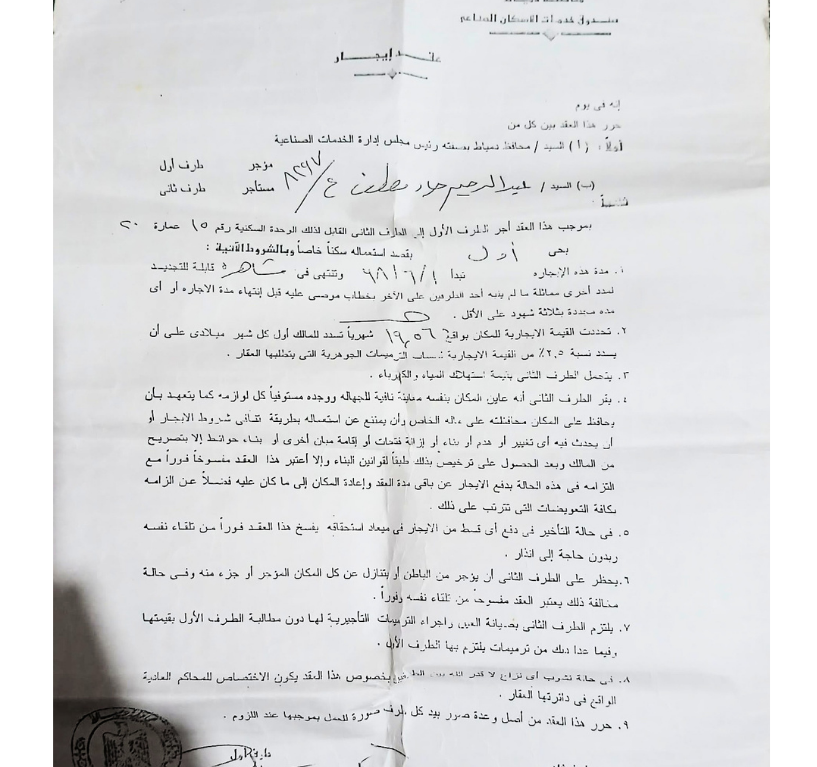 صندوق خدمات الإسكان الصناعى
عقد إيجــــار
إنه فى يوم
حرر هذا العقد بين كل من
أولاً : (أ) السيد / محافظ دمياط بصفته رئيس مجلس إدارة الخدمات الصناعية
مؤجر طرف أول
(ب) السيد / عبد الرحيم ع / ٨٢٩٧ مستأجر طرف ثانى
بموجب هذا العقد أجر الطرف الأول إلى الطرف الثانى القابل لذلك الوحدة السكنية رقم ١٥ عمارة ٢٠
بحى أول بقصد استعماله سكناً خاصاً وبالشروط الآتية :
١. مدة هذه الإجاره تبدأ ٦٨/٦/١ وتنتهى فى مشاهرة قابلة للتجديد
لمدد أخرى مماثلة ما لم ينبه أحد الطرفين على الآخر بخطاب موصى عليه قبل إنتهاء مدة الاجاره أو أى
مده محددة بثلاثة شهود على الأقل .
٢. تحددت القيمة الايجارية للمكان بواقع شهرياً تسدد للمالك أول كل شهر ميلادى على أن
يسدد نسبة ٢,٥٪ من القيمة الايجارية لحساب الترميمات الجوهرية التى يتطلبها العقار .
٣. يتحمل الطرف الثانى بقيمة استهلاك المياه والكهرباء .
٤. يقر الطرف الثانى أنه عاين المكان بنفسه معاينة نافية للجهاله ووجده مستوفياً كل لوازمه كما يتعهد بأن
يحافظ على المكان محافظته على ماله الخاص وأن يمتنع عن استعماله بطريقة تنافى شروط الايجار أو
أن يحدث فيه أى تغيير أو هدم أو بناء أو إزالة فتحات أو إقامة مبان أخرى أو بناء حوائط إلا بتصريح
من المالك وبعد الحصول على ترخيص بذلك طبقاً لقوانين البناء وإلا أعتبر هذا العقد مفسوخاً فوراً مع
التزامه فى هذه الحالة بدفع الايجار عن باقى مدة العقد وإعادة المكان إلى ما كان عليه فضلاً عن الزامه
بكافة التعويضات التى تترتب على ذلك .
٥. فى حالة التأخير فى دفع أى قسط من الايجار فى ميعاد استحقاقه يفسخ هذا العقد فوراً من تلقاء نفسه
وبدون حاجة إلى انذار .
٦. يحظر على الطرف الثانى أن يؤجر من الباطن أو يتنازل عن كل المكان المؤجر أو جزء منه وفى حالة
مخالفة ذلك يعتبر العقد مفسوخاً من تلقاء نفسه وفوراً .
٧. يلتزم الطرف الثانى بصيانة العين واجراء الترميمات التأجيرية لها دون مطالبة الطرف الأول بقيمتها
وفيما عدا ذلك من ترميمات يلتزم بها الطرف الأول .
٨. فى حالة نشوب أى نزاع لا قدر الله بين الطرفين بخصوص هذا العقد يكون الاختصاص للمحاكم العادية
الواقع فى دائرتها العقار .
٩. حرر هذا العقد من أصل وعدة صور بيد كل طرف صورة للعمل بموجبها عند اللزوم .
طرف أول